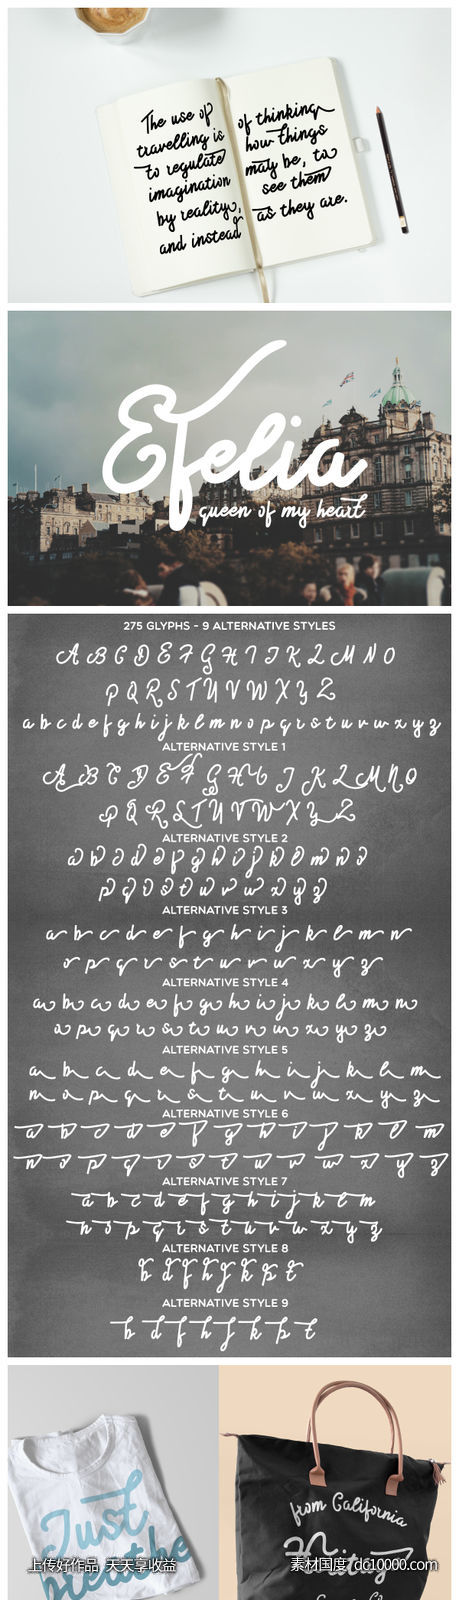 The use of
travelling is
to regulate
imagination
by reality,
and instead
of thinking
how things
may be, to
see them
as they are.
Efelia
queen of my heart
275 GLYPHS - 9 ALTERNATIVE STYLES
A B C D E F G H I J K L M N O
P Q R S T U V W X Y Z
a b c d e f g h i j k l m n o p q r s t u v w x y z
ALTERNATIVE STYLE 1
A B C D E F G H I J K L M N O
P Q R S T U V W X Y Z
ALTERNATIVE STYLE 2
a b c d e f g h i j k l m n o
p q r s t u v w x y z
ALTERNATIVE STYLE 3
a b c d e f g h i j k l m n
o p q r s t u v w x y z
ALTERNATIVE STYLE 4
a b c d e f g h i j k l m n
o p q r s t u v w x y z
ALTERNATIVE STYLE 5
a b c d e f g h i j k l m
n o p q r s t u v w x y z
ALTERNATIVE STYLE 6
a b c d e f g h i j k l m
n o p q r s t u v w x y z
ALTERNATIVE STYLE 7
a b c d e f g h i j k l m
n o p q r s t u v w x y z
ALTERNATIVE STYLE 8
b d f h j k p t
ALTERNATIVE STYLE 9
b d f h j k p t
Just
breathe
from California
上传好作品 天天享收益
素材国度 dc10000.com